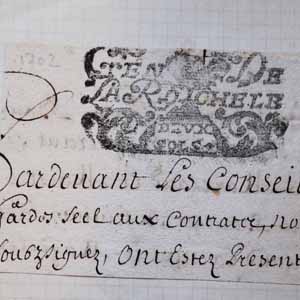 1702
GEN DE
LA ROCHELLE
DEVX
SOLS
Pardevant Les Conseil
Gardes Seel aux Contratx, No
soubzsignez, Ont Estez Present